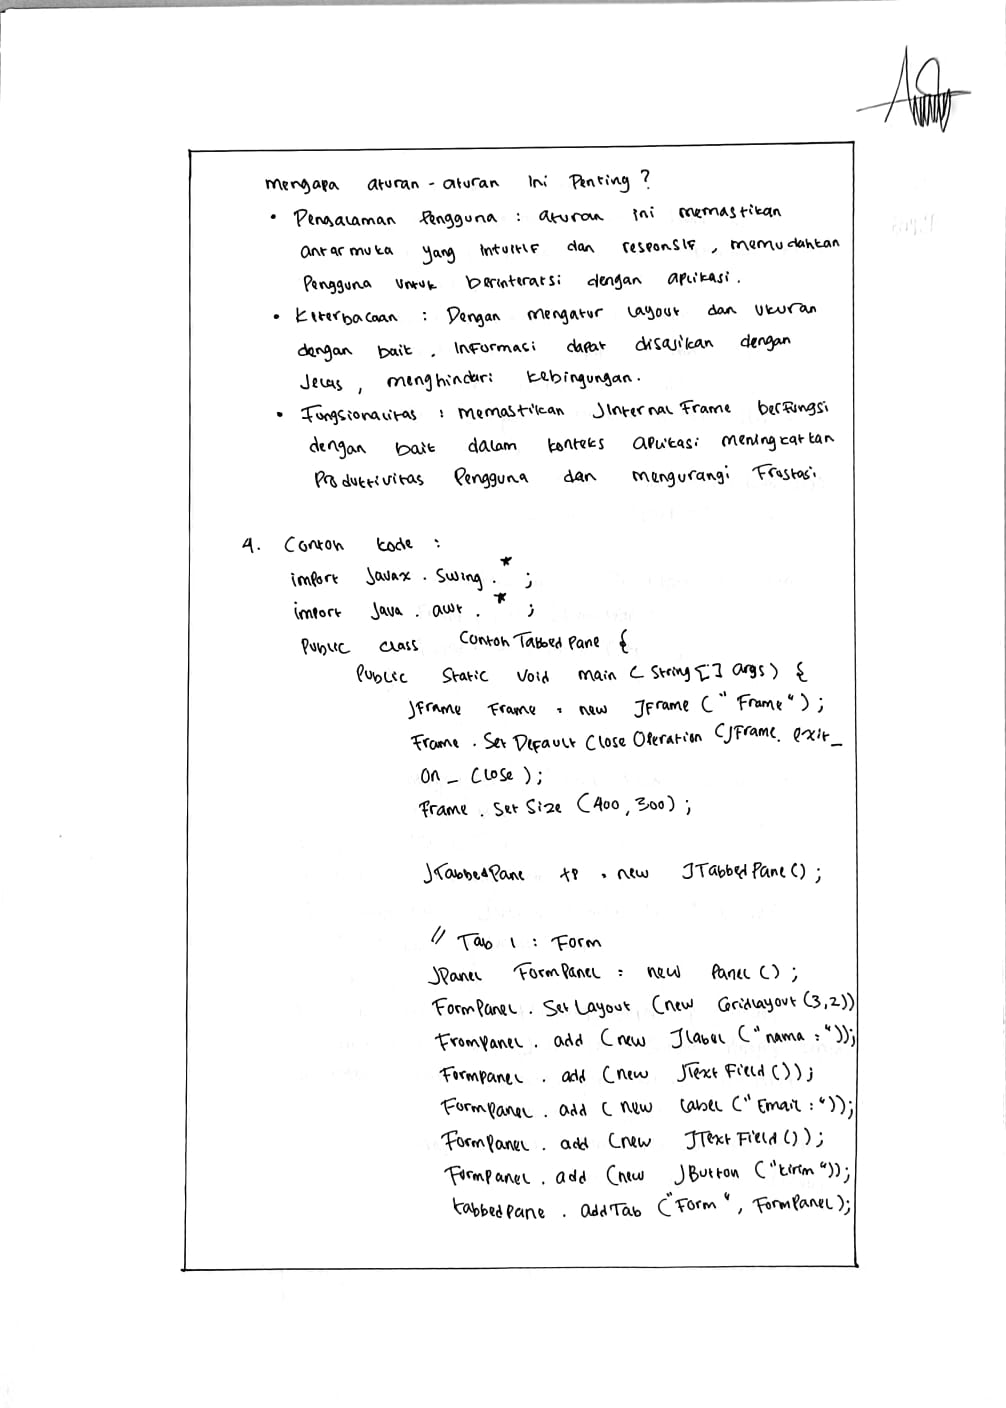 Mengapa aturan - aturan ini Penting ?
• Pengalaman Pengguna : aturan ini memastikan
antarmuka yang intuitif dan responsif , memudahkan
Pengguna untuk berinteraksi dengan aplikasi .
• Keterbacaan : Dengan mengatur layout dan ukuran
dengan baik , informasi dapat disajikan dengan
Jelas , menghindari kebingungan .
• Fungsionalitas : memastikan JInternal Frame berfungsi
dengan baik dalam konteks aplikasi meningkatkan
Produktivitas Pengguna dan mengurangi Frostasi
4. Contoh kode :
import Javax . Swing . * ;
import Java . awt . * ;
Public class Contoh Tabbed Pane {
Public Static Void main ( String [ ] args ) {
JFrame Frame = new JFrame ( " Frame " ) ;
Frame . Set Default Close Operation (JFrame. exit _
On _ Close ) ;
Frame . Set Size ( 400 , 300 ) ;
JTabbedPane tP = new JTabbedPane () ;
// Tab 1 : Form
JPanel FormPanel = new Panel () ;
FormPanel . Set Layout (new GridLayout (3,2))
FromPanel . add (new Jlabel ("nama :"));
Formpanel . add (new JText Field ());
Formpanel . add ( new label (" Email :"));
FormPanel . add (new JText Field ());
Formpanel . add (new JButton ("kirim"));
tabbedpane . addTab ("Form" , FormPanel);